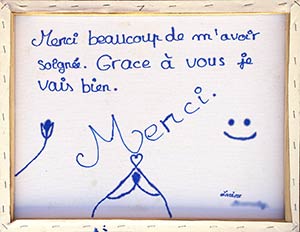 Merci beaucoup de m'avoir
soignée. Grace à vous je
vais bien.
Merci.